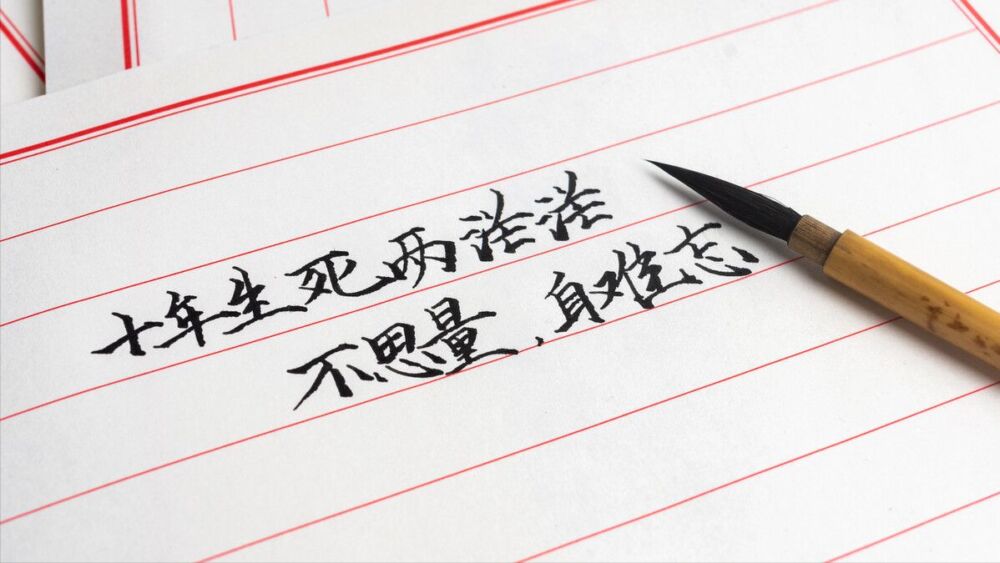 十年生死两茫茫
不思量,身难忘